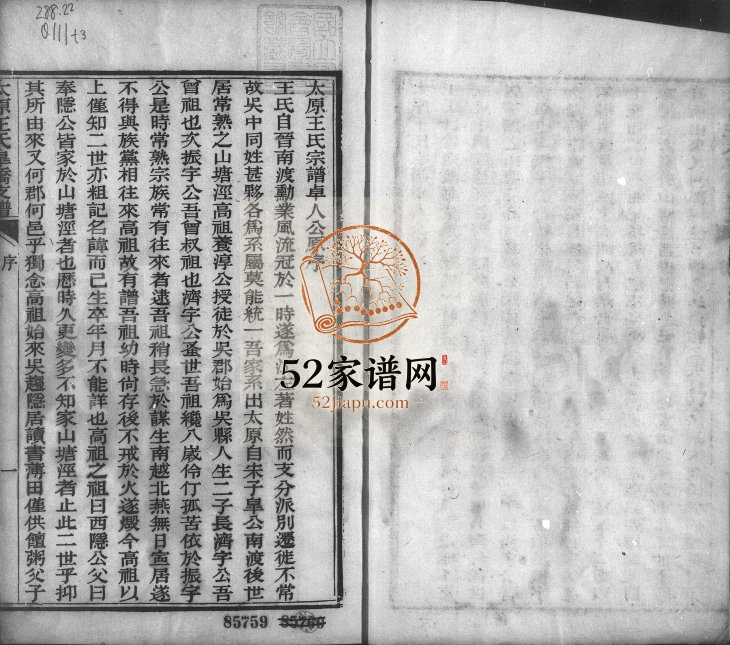 288.22
0111
t3
太原王氏宗譜卓人公原序
王氏自晉南渡勳業風流冠於一時遂爲 著姓然而支分派別遷徙不常
故吳中同姓甚夥各爲系屬莫能統一吾家系出太原自宋子皐公南渡後世
居常熟之山塘涇高祖養淳公授徒於吳郡始爲吳縣人生二子長濟字公吾
曾祖也次振字公吾曾叔祖也濟字公蚤世吾祖纔八歲伶仃孤苦依於振字
公是時常熟宗族常有往來者逮吾祖稍長急於謀生南越北燕無日寧居遂
不得與族黨相往來高祖故有譜吾祖幼時尙存後不戒於火遂燬今高祖以
上僅知二世亦粗記名諱而已生卒年月不能詳也高祖之祖曰西隱公父曰
奉隱公皆家於山塘涇者也歷時久更變多不知家山塘涇者止此二世乎抑
其所由來又何郡何邑乎獨念高祖始來吳趨隱居讀書薄田僅供饘粥父子
太原王氏皐橋支譜
序
一
52家谱网
52jiapu.com
85759
85760